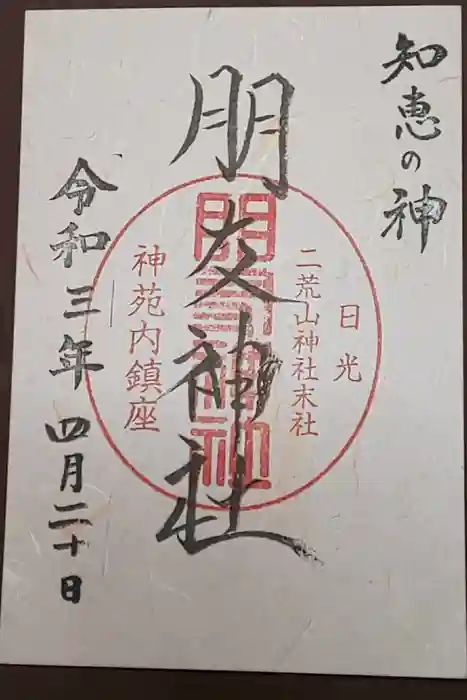 知恵の神
日光
二荒山神社末社
朋友神社
神苑内鎮座
令和三年四月二十日